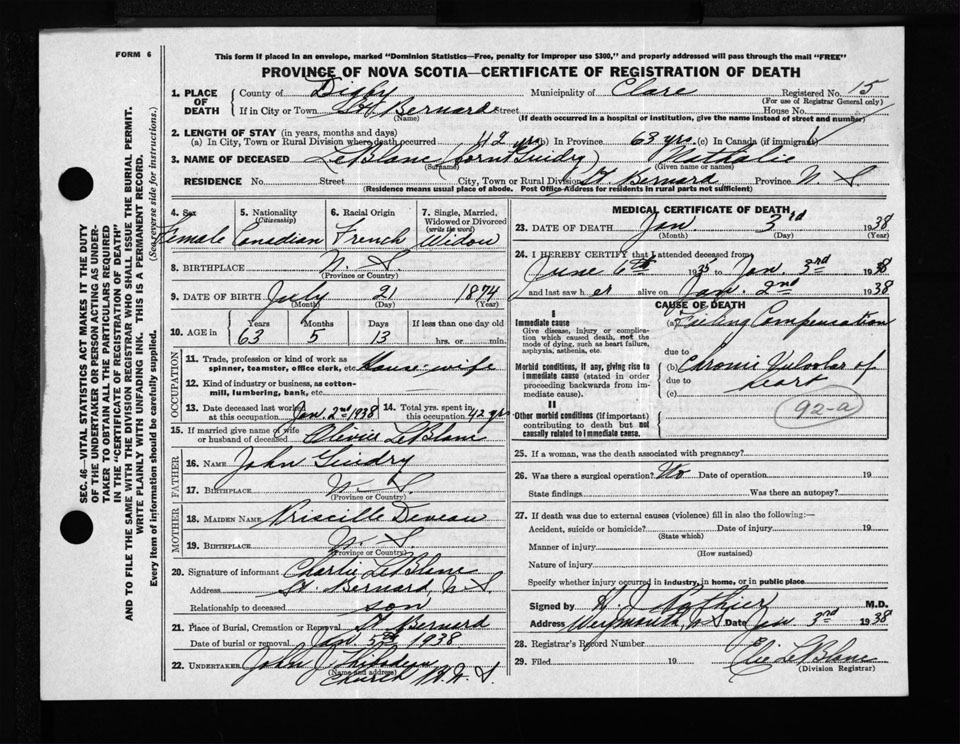 FORM 6
This form if placed in an envelope, marked "Dominion Statistics—Free, penalty for improper use $300," and properly addressed will pass through the mail "FREE"
PROVINCE OF NOVA SCOTIA—CERTIFICATE OF REGISTRATION OF DEATH
1. PLACE OF DEATH
County of Digby Municipality of Clare Registered No. 15
(For use of Registrar General only)
If in City or Town St Bernard Street House No.
(Name) (If death occurred in a hospital or institution, give the name instead of street and number)
2. LENGTH OF STAY (in years, months and days)
(a) In City, Town or Rural Division where death occurred 42 yrs (b) In Province 63 yrs. (c) In Canada (if immigrant)
3. NAME OF DECEASED LeBlanc (born Guidry) Nathalie
(Surname) (Given name or names)
RESIDENCE No. Street City, Town or Rural Division St. Bernard Province N. S.
(Residence means usual place of abode. Post Office Address for residents in rural parts not sufficient)
4. Sex
Female
5. Nationality
(Citizenship)
Canadian
6. Racial Origin
French
7. Single, Married, Widowed or Divorced
(write the word)
Widow
8. BIRTHPLACE N. S.
(Province or Country)
9. DATE OF BIRTH July 21 1874
(Month) (Day) (Year)
10. AGE in
Years Months Days If less than one day old
63 5 13 hrs. or min.
OCCUPATION
11. Trade, profession or kind of work as spinner, teamster, office clerk, etc. House-wife
12. Kind of industry or business, as cotton-mill, lumbering, bank, etc.
13. Date deceased last worked at this occupation Jan. 2nd, 1938
14. Total yrs. spent in this occupation 42 yrs
15. If married give name of wife or husband of deceased LeBlanc
FATHER
16. NAME John Guidry
17. BIRTHPLACE N. S.
(Province or Country)
MOTHER
18. MAIDEN NAME Priscille Deveau
19. BIRTHPLACE N. S.
(Province or Country)
20. Signature of informant Charlie LeBlanc
Address St. Bernard, N. S
Relationship to deceased son
21. Place of Burial, Cremation or Removal St Bernard
Date of burial or removal Jan. 5th 1938
22. UNDERTAKER John J. Thibodeau
(Name and address)
Church N. S.
MEDICAL CERTIFICATE OF DEATH
23. DATE OF DEATH Jan 3rd 1938
(Month) (Day) (Year)
24. I HEREBY CERTIFY that I attended deceased from
June 6th 1935 to Jan. 3rd 1938
and last saw her alive on Jan. 2nd 1938
CAUSE OF DEATH
I
Immediate cause
Give disease, injury or complication which caused death, not the mode of dying, such as heart failure, asphyxia, asthenia, etc.
(a) Failing Compensation
due to
Morbid conditions, if any, giving rise to immediate cause (stated in order proceeding backwards from immediate cause).
(b) Chronic Valvular of heart
due to
(c)
92-a
II
Other morbid conditions (if important) contributing to death but not causally related to immediate cause.
25. If a woman, was the death associated with pregnancy?
26. Was there a surgical operation? No Date of operation 19
State findings Was there an autopsy?
27. If death was due to external causes (violence) fill in also the following:—
Accident, suicide or homicide? Date of injury 19
(State which)
Manner of injury
(How sustained)
Nature of injury
Specify whether injury occurred in industry, in home, or in public place
Signed by H. J. Pothier M.D.
Address Weymouth, N S Date Jan 3rd 1938
28. Registrar's Record Number
29. Filed 19 Elie LeBlanc
(Division Registrar)
SEC. 46—VITAL STATISTICS ACT MAKES IT THE DUTY
OF THE UNDERTAKER OR PERSON ACTING AS UNDERTAKER TO OBTAIN ALL THE PARTICULARS REQUIRED
IN THE "CERTIFICATE OF REGISTRATION OF DEATH"
AND TO FILE THE SAME WITH THE DIVISION REGISTRAR WHO SHALL ISSUE THE BURIAL PERMIT.
WRITE PLAINLY WITH UNFADING INK. THIS IS A PERMANENT RECORD.
Every item of information should be carefully supplied. (See reverse side for instructions.)